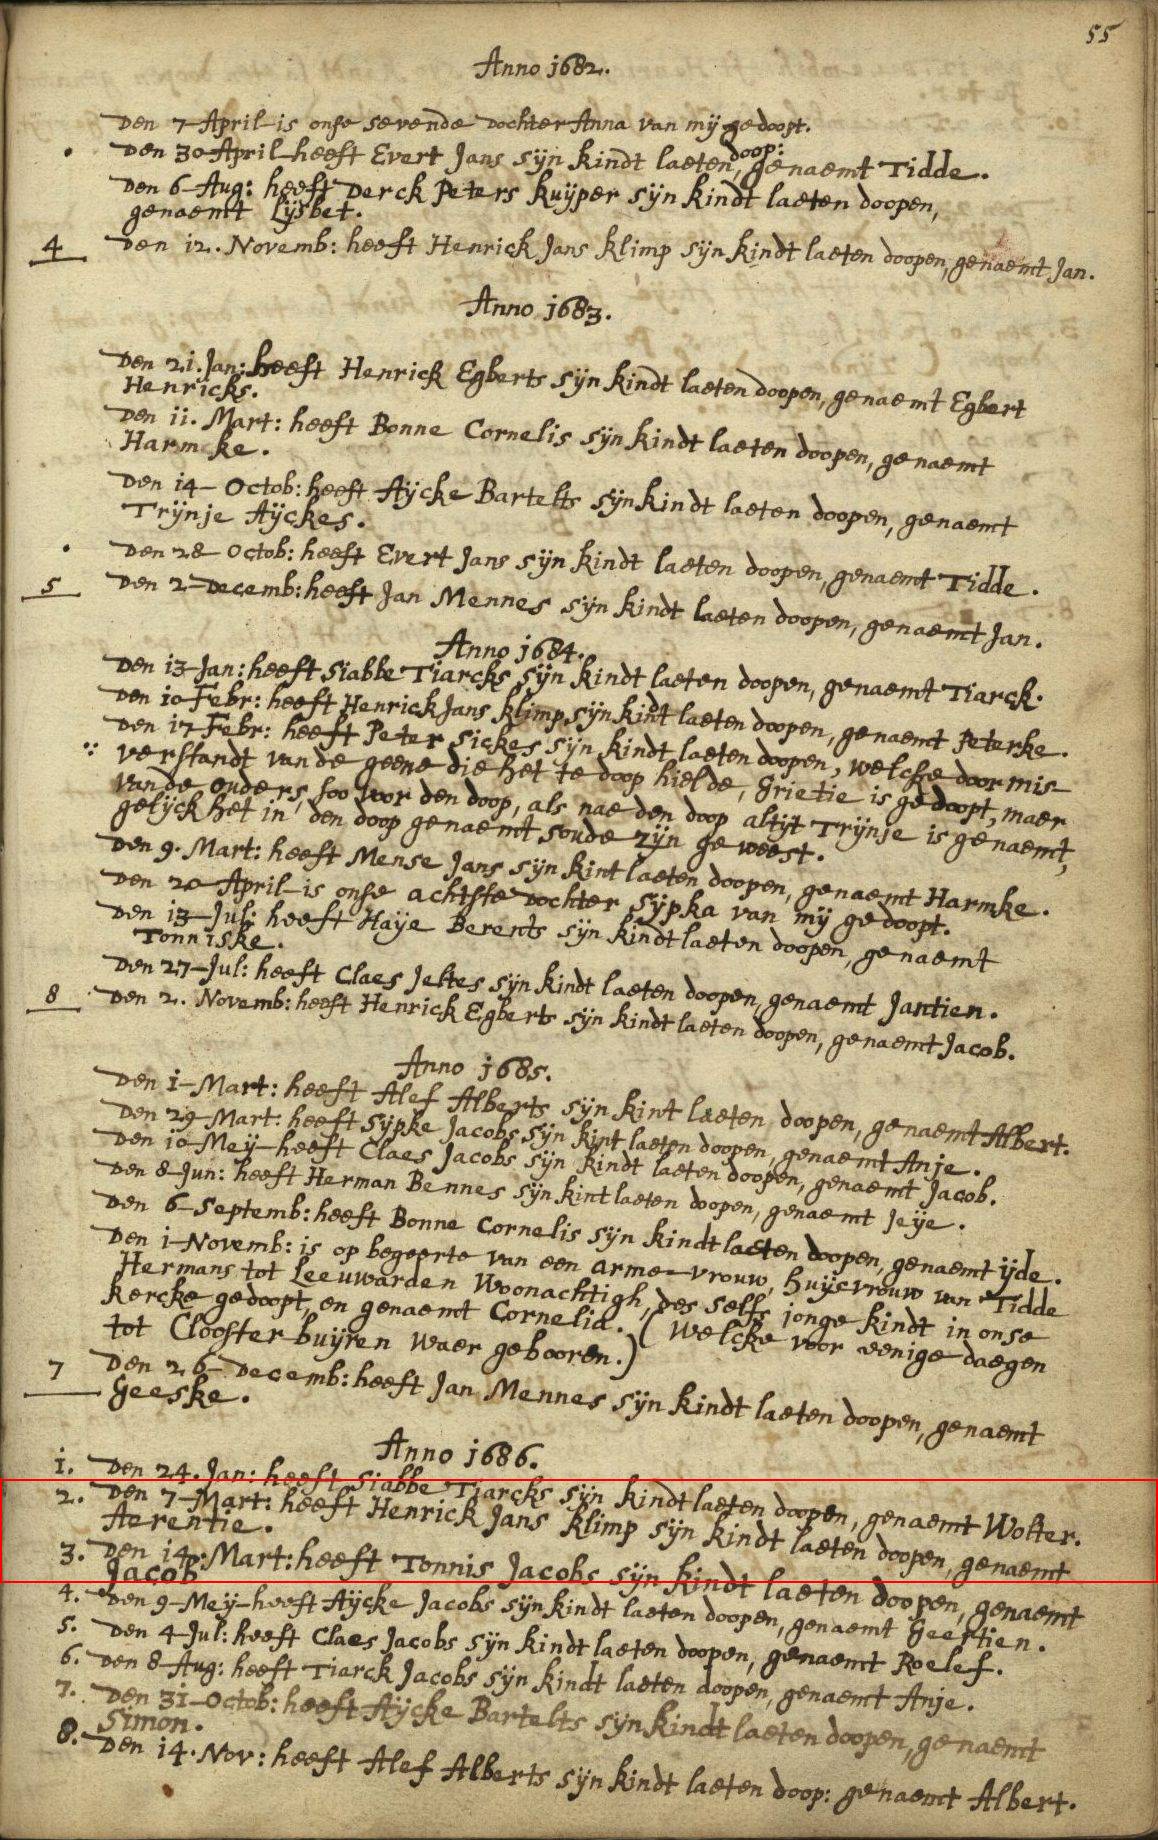 55
Anno 1682.
Den 7 April is onse sevende dochter Anna van mij gedoopt.
Den 30 April heeft Evert Jans sijn kindt laeten doop: genaemt Tidde.
Den 6 Aug: heeft Derck Peters kuijper sijn kindt laeten doopen,
genaemt Lijsbet.
4 Den 12. Novemb: heeft Henrick Jans klimp sijn kindt laeten doopen, genaemt Jan.
Anno 1683.
Den 21. Jan: heeft Henrick Egberts sijn kindt laeten doopen, genaemt Egbert
Henricks.
Den 11. Mart: heeft Bonne Cornelis sijn kindt laeten doopen, genaemt
Harmcke.
Den 14 Octob: heeft Aijcke Bartelts sijn kindt laeten doopen, genaemt
Trijnje Aijckes.
Den 28 Octob: heeft Evert Jans sijn kindt laeten doopen, genaemt Tidde.
5 Den 2 Decemb: heeft Jan Mennes sijn kindt laeten doopen, genaemt Jan.
Anno 1684.
Den 13 Jan: heeft Siabbe Tiarcks sijn kindt laeten doopen, genaemt Tiarck.
Den 10 Febr: heeft Henrick Jans klimp sijn kindt laeten doopen, genaemt Peterke.
Den 17 Febr: heeft Peter Sickes sijn kindt laeten doopen, welcke door mis
verstandt van de geene die het te doop hielde, Grietie is gedoopt, maer
van de ouders, soo voor den doop, als nae den doop altijt Trijnje is genaemt,
gelijck het in den doop genaemt soude zijn geweest.
Den 9. Mart: heeft Mense Jans sijn kint laeten doopen, genaemt Harmke.
Den 20 April is onse achtste dochter Sijpka van mij gedoopt.
Den 13 Jul: heeft Haije Berents sijn kindt laeten doopen, genaemt
Tonniske.
Den 27 Jul: heeft Claes Jeltes sijn kindt laeten doopen, genaemt Jantien.
8 Den 2. Novemb: heeft Henrick Egberts sijn kindt laeten doopen, genaemt Jacob.
Anno 1685.
Den 1 Mart: heeft Alef Alberts sijn kint laeten doopen, genaemt Albert.
Den 29 Mart: heeft Sijpke Jacobs sijn kint laeten doopen, genaemt Anje.
Den 10 Meij heeft Claes Jacobs sijn kindt laeten doopen, genaemt Jacob.
Den 8 Jun: heeft Herman Bennes sijn kint laeten doopen, genaemt Jeije.
Den 6 Septemb: heeft Bonne Cornelis sijn kindt laeten doopen, genaemt ijde.
Den 1 Novemb: is op begeerte van een arme vrouw, huijsvrouw van Tidde
Hermans tot Leeuwarden woonachtigh, des selfs jonge kindt in onse
kercke gedoopt, en genaemt Cornelia. (Welcke voor eenige daegen
tot Clooster buijren waer gebooren.)
7 Den 26 Decemb: heeft Jan Mennes sijn kindt laeten doopen, genaemt
Geeske.
Anno 1686.
1. Den 24. Jan: heeft Siabbe Tiarcks sijn kindt laeten doopen, genaemt Wolter.
2. Den 7 Mart: heeft Henrick Jans klimp sijn kindt laeten doopen, genaemt
Aerentie.
3. Den 14 Mart: heeft Tonnis Jacobs sijn kindt laeten doopen, genaemt
Jacob
4. Den 9 Meij heeft Aijcke Jacobs sijn kindt laeten doopen, genaemt Geertien.
5. Den 4 Jul: heeft Claes Jacobs sijn kindt laeten doopen, genaemt Roelef.
6. Den 8 Aug: heeft Tiarck Jacobs sijn kindt laeten doopen, genaemt Anje.
7. Den 31 Octob: heeft Aijcke Bartelts sijn kindt laeten doopen, genaemt
Simon.
8. Den 14. Nov: heeft Alef Alberts sijn kindt laeten doop: genaemt Albert.